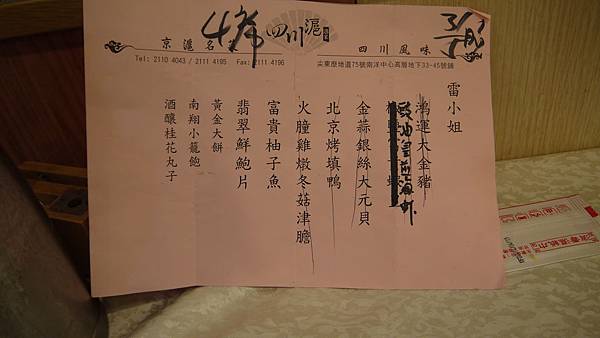 京滬名
4席
四川滬
四川風味
Tel: 2110 4043 / 2111 4195 Fax: 2111 4196
尖東麼地道75號南洋中心高層地下33-45號舖
雷小姐
鴻運大金豬
豉油皇煎海蝦
金蒜銀絲大元貝
北京烤填鴨
火朣雞燉冬菇津膽
富貴柚子魚
翡翠鮮鮑片
黃金大餅
南翔小籠飽
酒釀桂花丸子